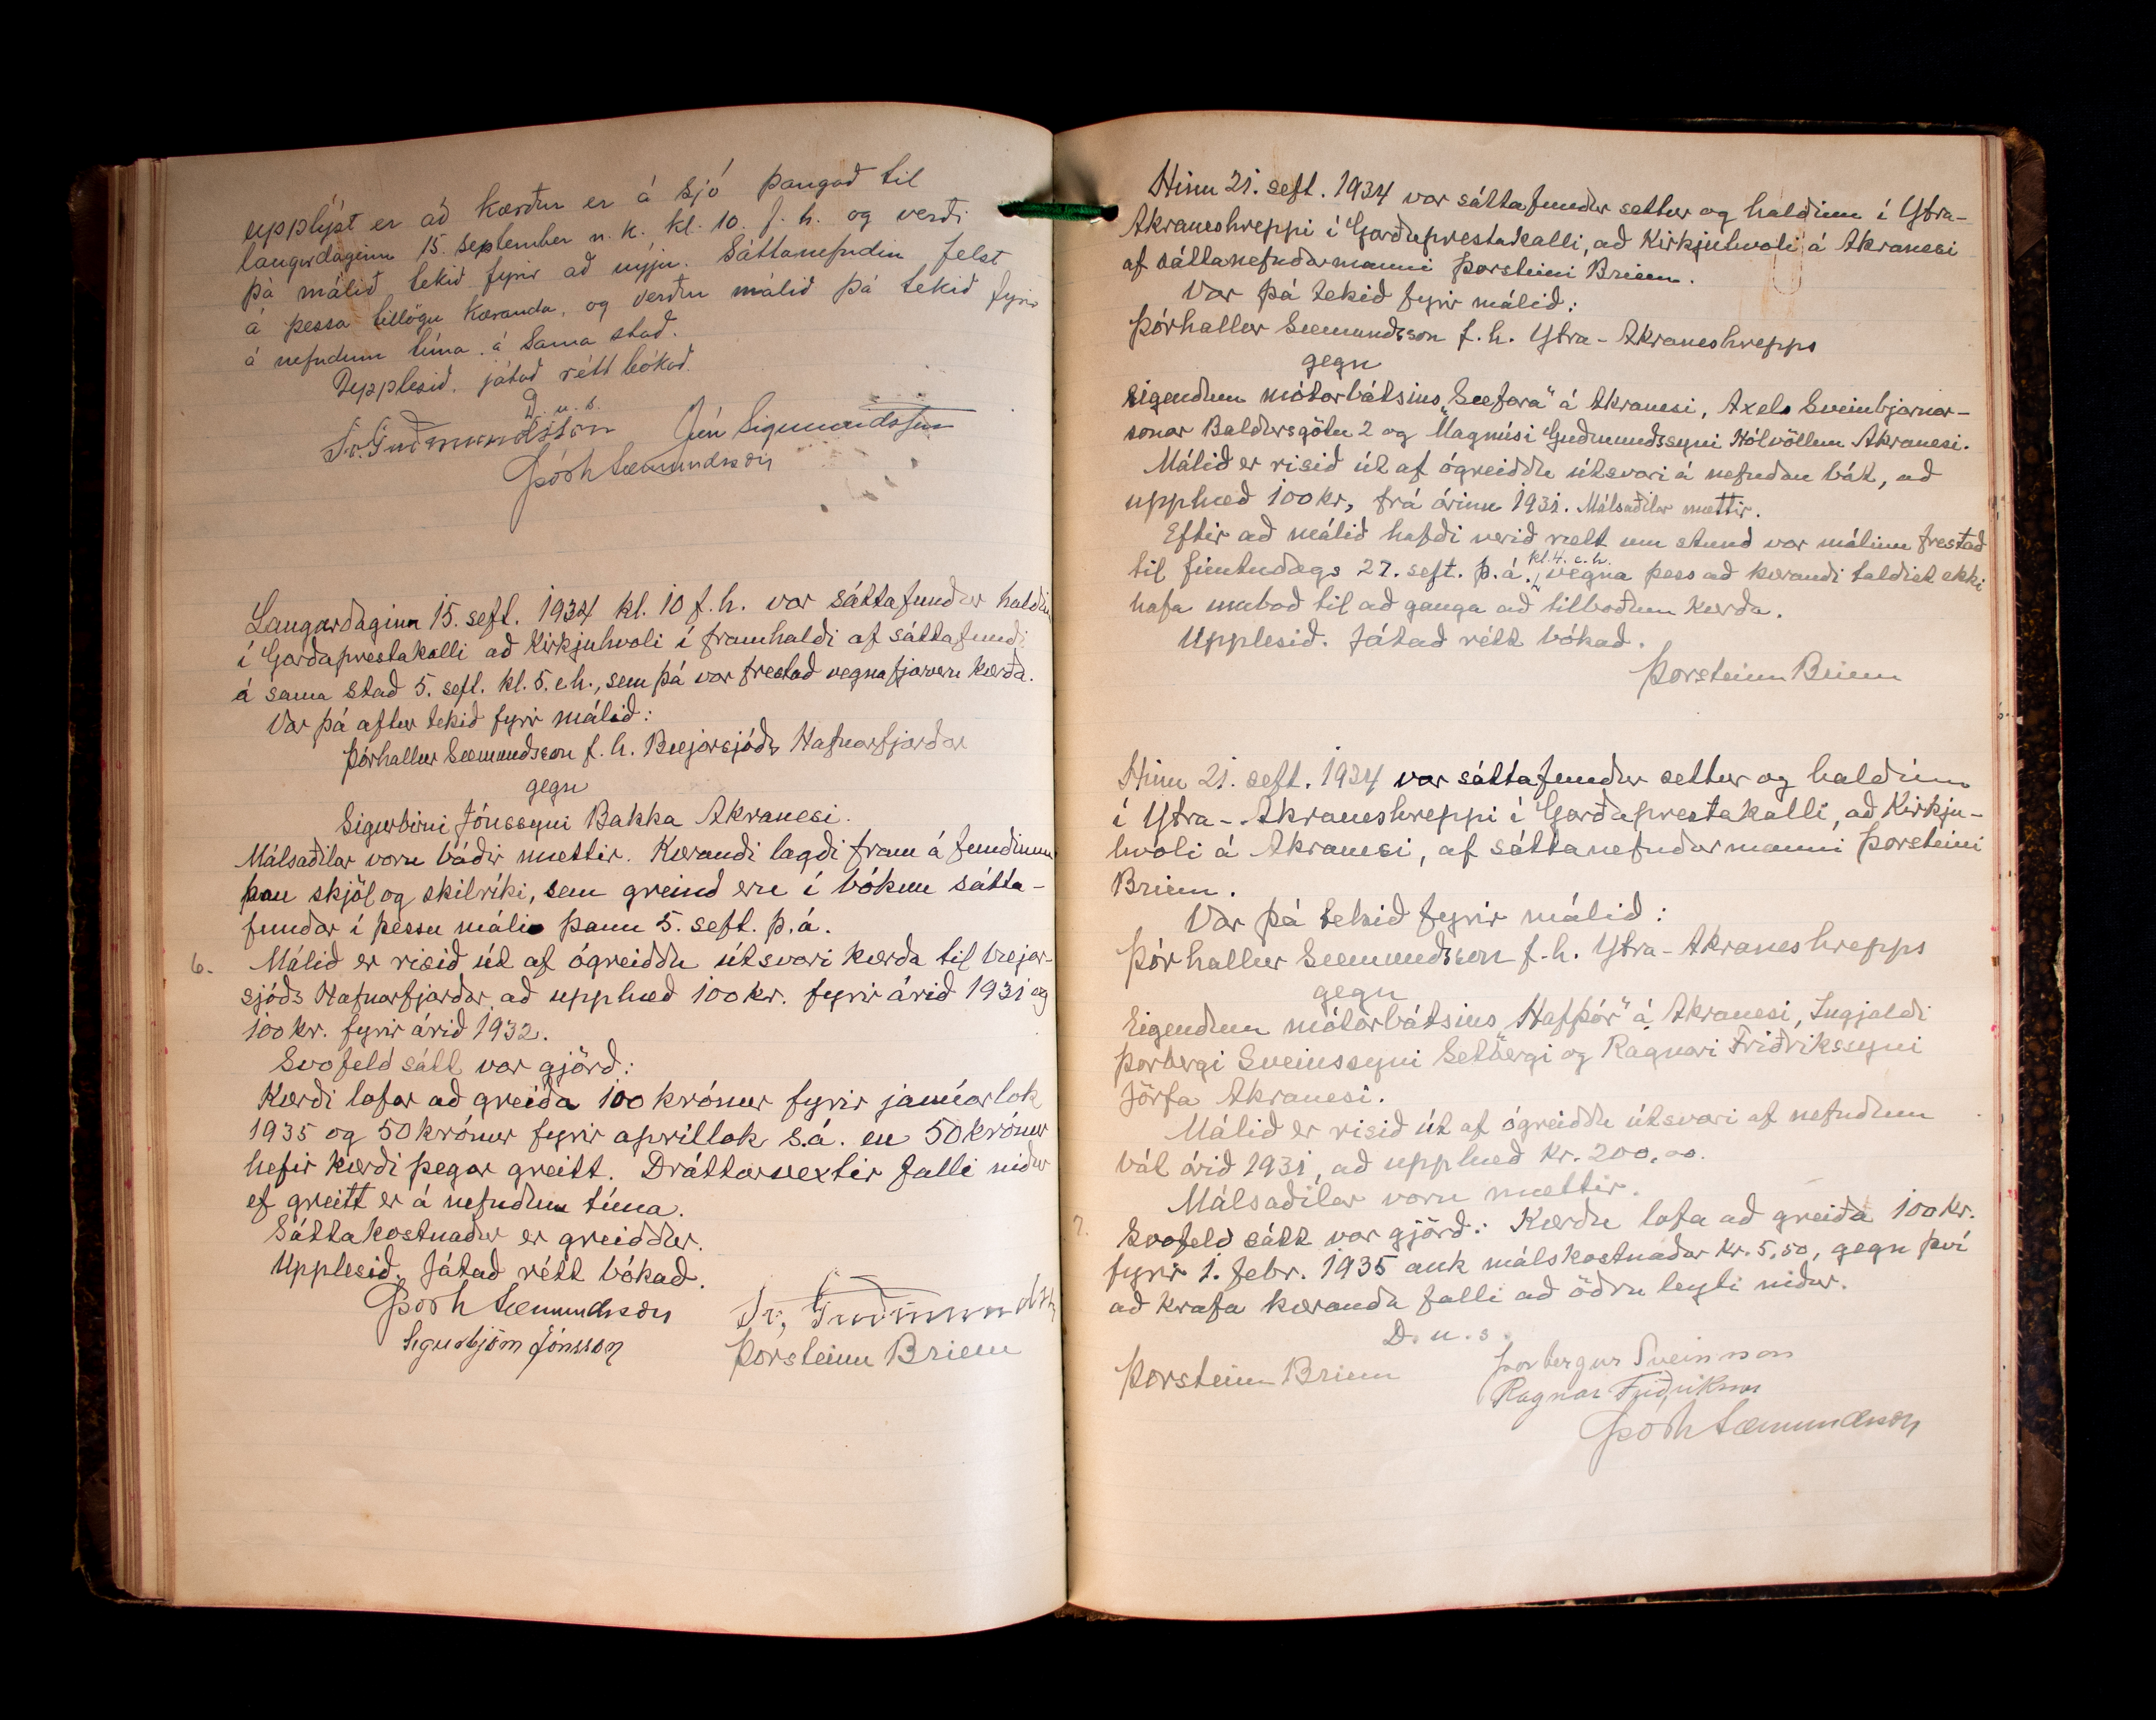 upplýst er að kærður er á sjó þangað til
laugardaginn 15. september n.k. kl. 10. f.h. og verði
þá málið tekið fyrir að nýju. Sáttanefndin felst
á þessa tillögu kæranda, og verður málið þá tekið fyrir
á nefndum tíma á sama stað.
Upplesið, játað rétt bókað.
D.u.s.
Sv. Guðmundsson Jón Sigmundsson
Þórh Sæmundsson
Laugardaginn 15. sept. 1934 kl. 10 f.h. var sáttafundur haldin
í Garðaprestakalli að Kirkjuhvoli í framhaldi af sáttafundi
á sama stað 5. sept. kl. 5. e.h., sem þá var frestað vegna fjarveru kærða.
Var þá aftur tekið fyrir málið:
Þórhallur Sæmundsson f.h. Bæjarsjóðs Hafnarfjarðar
gegn
Sigurbirni Jónssyni Bakka Akranesi.
Málsaðilar voru báðir mættir. Kærandi lagði fram á fundinum
þau skjöl og skilríki, sem greind eru í bókun sátta-
fundar í þessu máli þann 5. sept. þ.á.
6. Málið er risið út af ógreiddu útsvari kærða til bæjar-
sjóðs Hafnarfjarðar að upphæð 100 kr. fyrir árið 1931 og
100 kr. fyrir árið 1932.
Svofeld sátt var gjörð:
Kærði lofar að greiða 100 krónur fyrir janúarlok
1935 og 50 krónur fyrir apríllok s.á. en 50 krónur
hefir kærði þegar greitt. Dráttarvextir falli niður
ef greitt er á nefndum tíma.
Sáttakostnaður er greiddur.
Upplesið. Játað rétt bókað.
Þórh Sæmundsson Sv. Guðmundsson
Sigurbjörn Jónsson Þorsteinn Briem
Hinn 21. sept. 1934 var sáttafundur settur og haldinn í Ytra-
Akraneshreppi í Garðaprestakalli, að Kirkjuhvoli á Akranesi
af sáttanefndarmanni Þorsteini Briem.
Var þá tekið fyrir málið:
Þórhallur Sæmundsson f.h. Ytra-Akraneshrepps
gegn
Eigendum mótorbátsins „Sæfara" á Akranesi, Axels Sveinbjarnar-
sonar Baldursgötu 2 og Magnúsi Guðmundssyni Hólvöllum Akranesi.
Málið er risið út af ógreiddu útsvari á nefndan bát, að
upphæð 100 kr, frá árinu 1931. Málsaðilar mættir.
Eftir að málið hafði verið rætt um stund var málinu frestað
til fimtudags 27. sept. þ.á., kl. 4. e.h. vegna þess að kærandi taldist ekki
hafa umboð til að ganga að tilboðum kærða.
Upplesið. Játað rétt bókað.
Þorsteinn Briem
Hinn 21. sept. 1934 var sáttafundur settur og haldinn
í Ytra-Akraneshreppi í Garðaprestakalli, að Kirkju-
hvoli á Akranesi, af sáttanefndarmanni Þorsteini
Briem.
Var þá tekið fyrir málið:
Þórhallur Sæmundsson f.h. Ytra-Akraneshrepps
gegn
Eigendum mótorbátsins „Hafþór" á Akranesi, Ingjaldi
Þorbergi Sveinssyni Setbergi og Ragnari Friðrikssyni
Jörfa Akranesi.
Málið er risið út af ógreiddu útsvari af nefndum
bát árið 1931, að upphæð kr. 200,00.
Málsaðilar voru mættir.
7. Svofeld sátt var gjörð: Kærðu lofa að greiða 100 kr.
fyrir 1. febr. 1935 auk málskostnaðar kr. 5,50, gegn því
að krafa kæranda falli að öðru leyti niður.
D.u.s.
Þorsteinn Briem Þorbergur Sveinsson
Ragnar Friðriksson
Þórh Sæmundsson